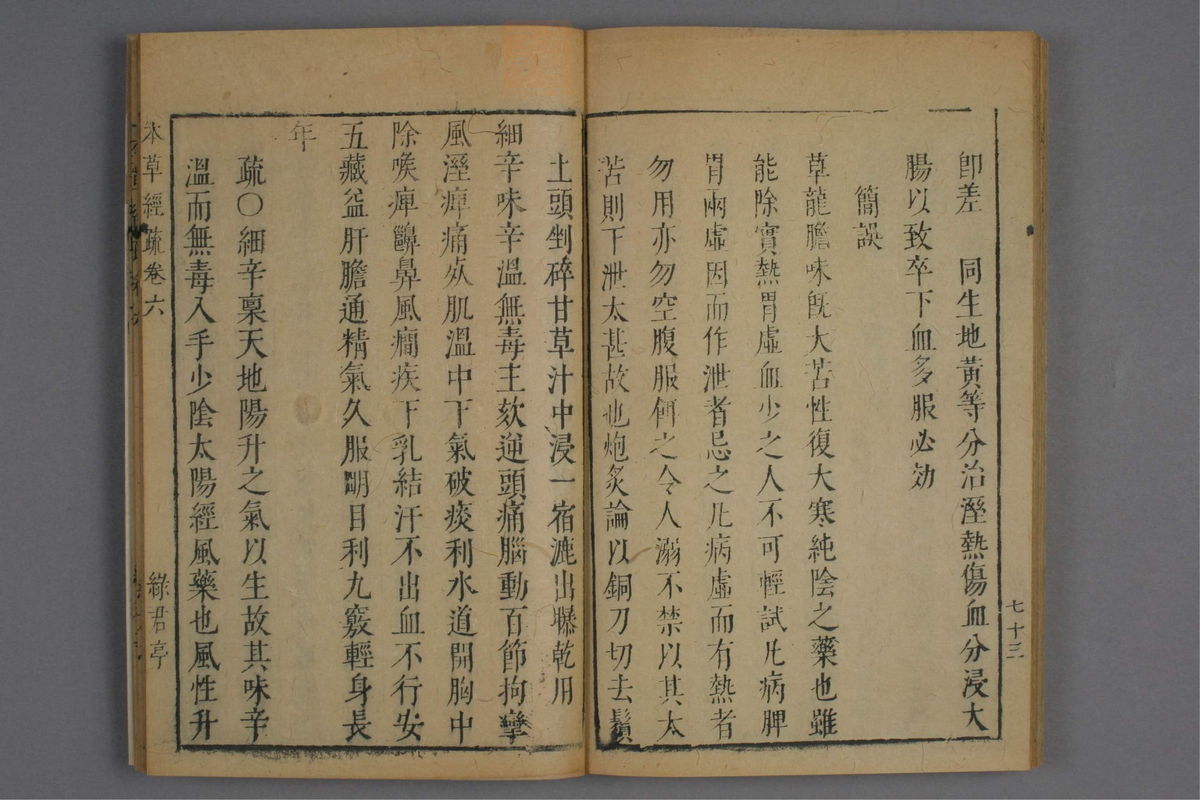 七十三
卽差　同生地黃等分治溼熱傷血分浸大
腸以致卒下血多服必効
簡誤
草龍膽味旣大苦性復大寒純陰之藥也雖
能除實熱胃虛血少之人不可輕試凡病脾
胃兩虛因而作泄者忌之凡病虛而有熱者
勿用亦勿空腹服餌之令人溺不禁以其太
苦則下泄太甚故也炮炙論以銅刀切去鬚
土頭剉碎甘草汁中浸一宿漉出曝乾用
細辛味辛溫無毒主欬逆頭痛腦動百節拘攣
風溼痺痛死肌溫中下氣破痰利水道開胸中
除喉痺齆鼻風癎疾下乳結汗不出血不行安
五藏益肝膽通精氣久服明目利九竅輕身長
年
疏〇細辛稟天地陽升之氣以生故其味辛
溫而無毒入手少陰太陽經風藥也風性升
本草經疏卷六
綠君亭